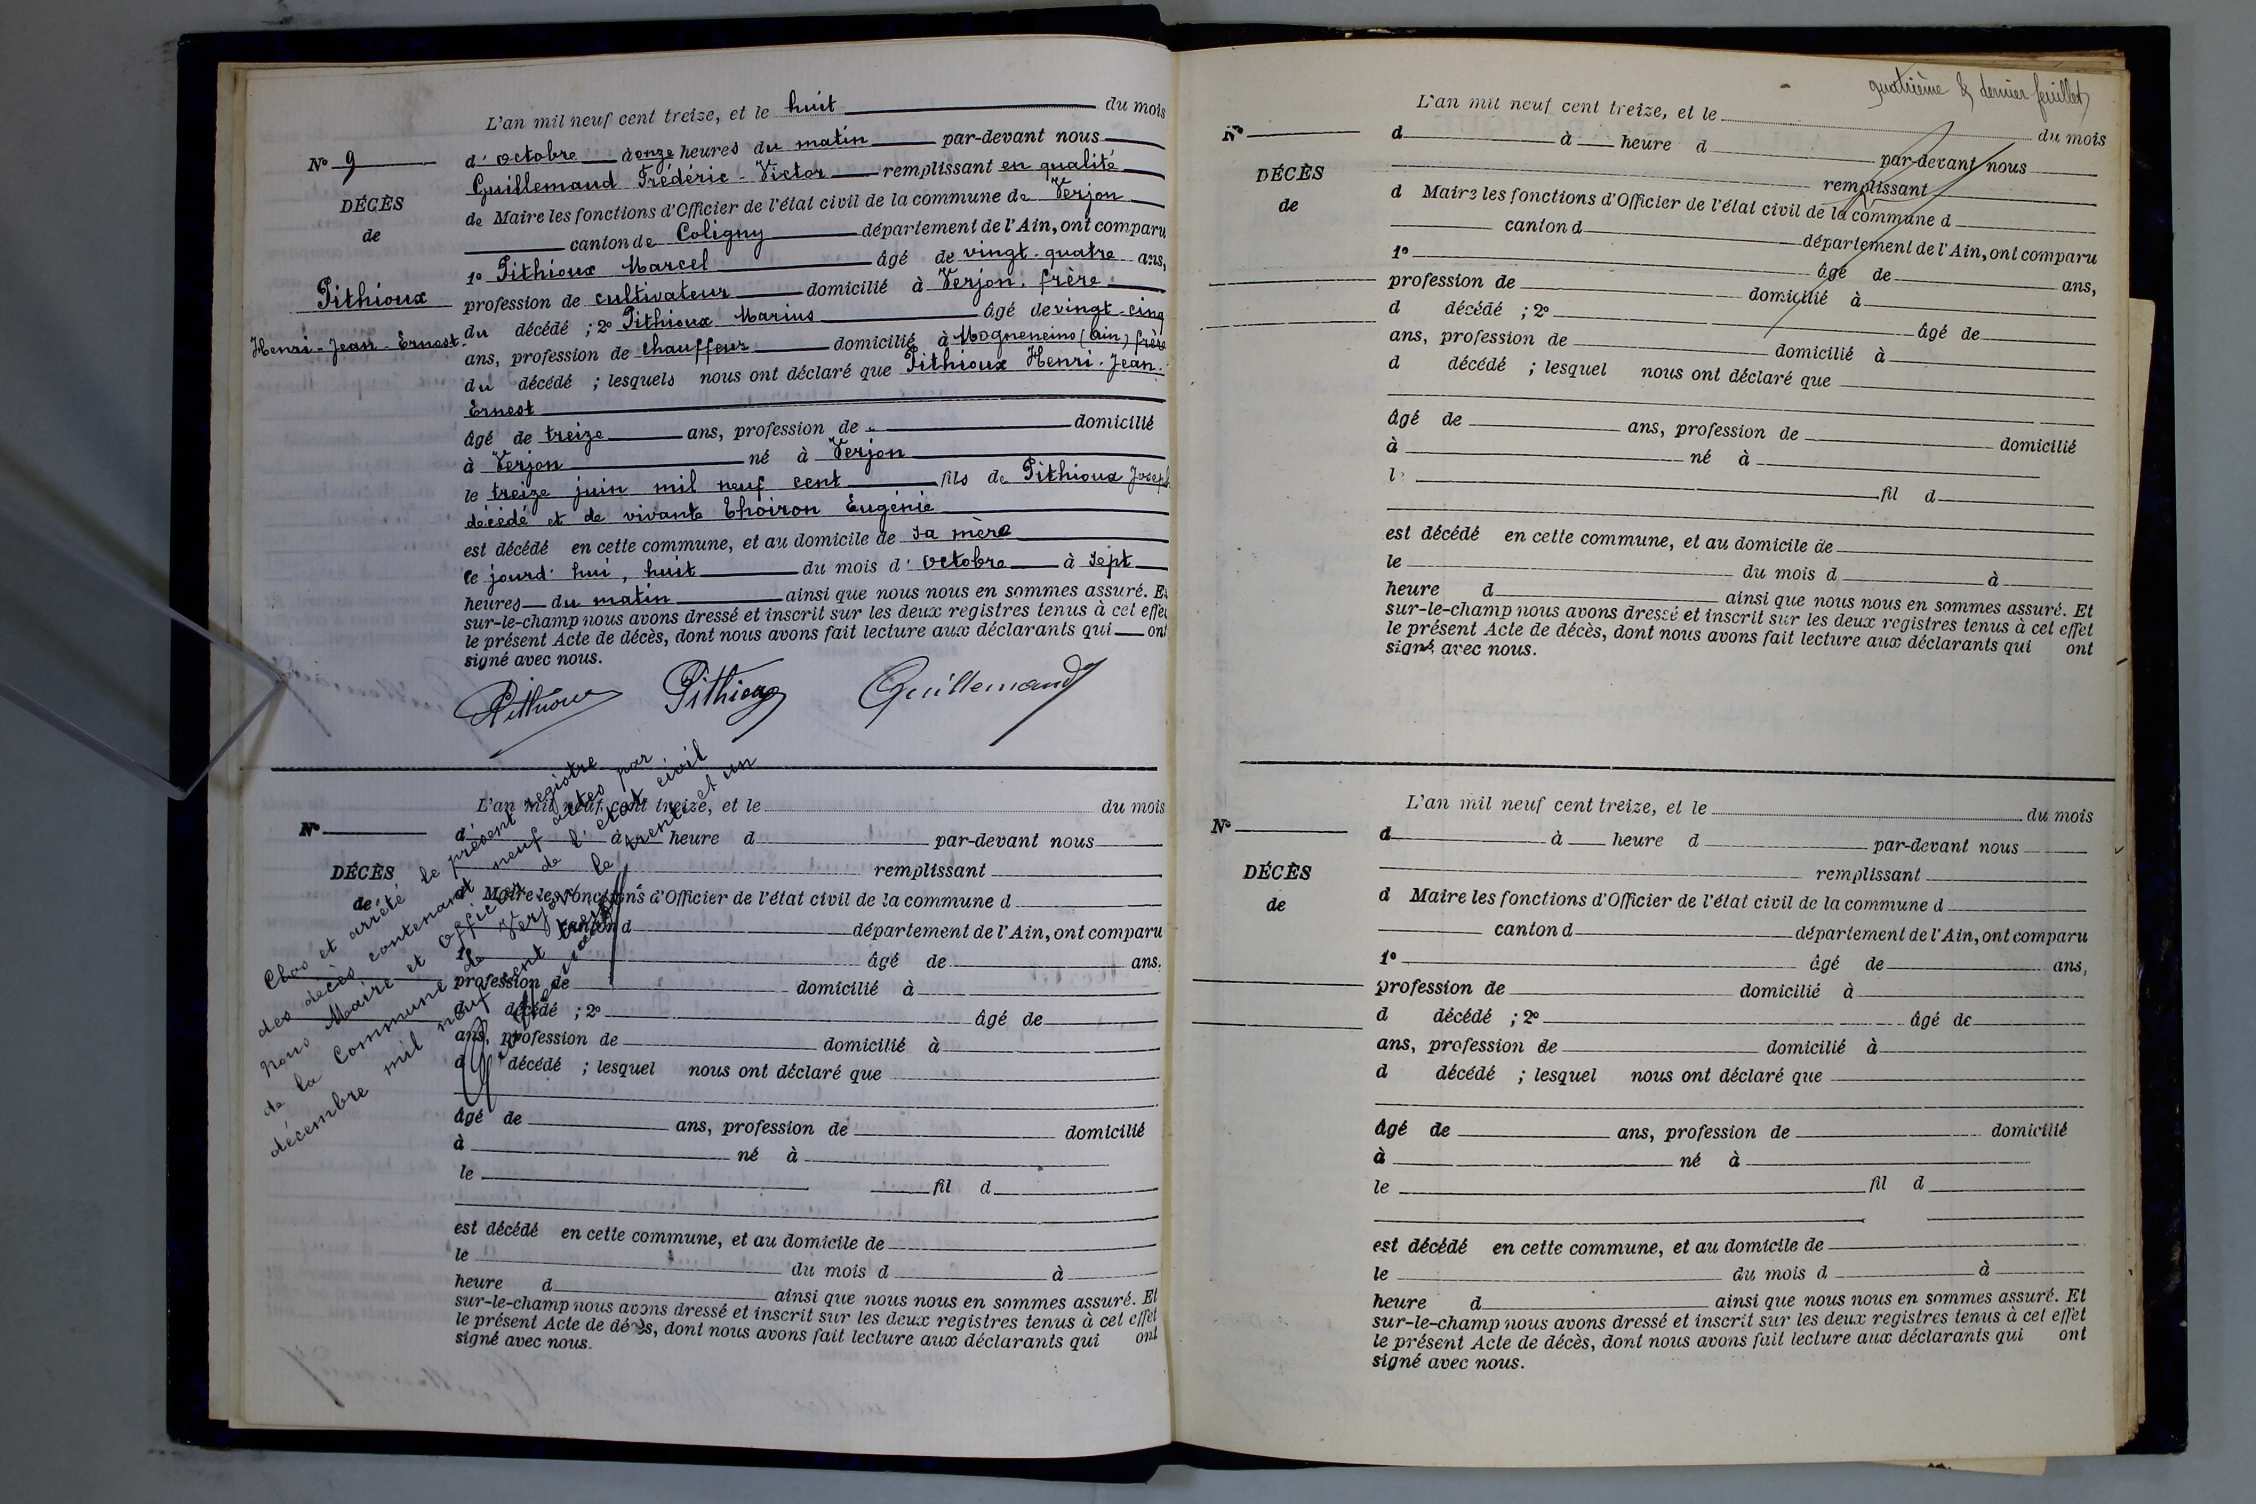 L'an mil neuf cent treize, et le huit du mois
N° 9
d'octobre à onze heures du matin par-devant nous
Guillemaud Frédéric-Victor remplissant en qualité
DÉCÈS
de Maire les fonctions d'Officier de l'état civil de la commune de Verjon
de
canton de Coligny département de l'Ain, ont comparu
1° Pithioux Marcel âgé de vingt-quatre ans,
Pithioux
profession de cultivateur domicilié à Verjon, frère
Henri-Jean-Ernest.
du décédé ; 2° Pithioux Marius âgé de vingt-cinq
ans, profession de chauffeur domicilié à Mogneneins (Ain) frère
du décédé ; lesquels nous ont déclaré que Pithioux Henri-Jean-
Ernest
âgé de treize ans, profession de domicilié
à Verjon né à Verjon
le treize juin mil neuf cent fils de Pithioux Joseph
décédé et de vivante Thoiron Eugénie
est décédé en cette commune, et au domicile de sa mère
ce jourd'hui, huit du mois d'octobre à sept
heures du matin ainsi que nous nous en sommes assuré. Et
sur-le-champ nous avons dressé et inscrit sur les deux registres tenus à cet effet
le présent Acte de décès, dont nous avons fait lecture aux déclarants qui ont
signé avec nous.
Pithioux Pithioux Guillemaud
L'an mil neuf cent treize, et le du mois
N°
d à heure d par-devant nous
remplissant
DÉCÈS
d Maire les fonctions d'Officier de l'état civil de la commune d
de
canton d département de l'Ain, ont comparu
1° âgé de ans.
profession de domicilié à
d décédé ; 2° âgé de
ans, profession de domicilié à
d décédé ; lesquel nous ont déclaré que
âgé de ans, profession de domicilié
à né à
le fil d
est décédé en cette commune, et au domicile de
le du mois d à
heure d ainsi que nous nous en sommes assuré. Et
sur-le-champ nous avons dressé et inscrit sur les deux registres tenus à cet effet
le présent Acte de décès, dont nous avons fait lecture aux déclarants qui ont
signé avec nous.
Clos et arrêté le présent registre
des décès contenant neuf actes par
nous Maire et officier de l'état civil
de la Commune de Verjon le trente et un
décembre mil neuf cent treize
Guillemaud
quatrième & dernier feuillet
L'an mil neuf cent treize, et le du mois
N°
d à heure d par-devant nous
remplissant
DÉCÈS
d Maire les fonctions d'Officier de l'état civil de la commune d
de
canton d département de l'Ain, ont comparu
1° âgé de ans,
profession de domicilié à
d décédé ; 2° âgé de
ans, profession de domicilié à
d décédé ; lesquel nous ont déclaré que
âgé de ans, profession de domicilié
à né à
l fil d
est décédé en cette commune, et au domicile de
le du mois d à
heure d ainsi que nous nous en sommes assuré. Et
sur-le-champ nous avons dressé et inscrit sur les deux registres tenus à cet effet
le présent Acte de décès, dont nous avons fait lecture aux déclarants qui ont
signé avec nous.
L'an mil neuf cent treize, et le du mois
N°
d à heure d par-devant nous
remplissant
DÉCÈS
d Maire les fonctions d'Officier de l'état civil de la commune d
de
canton d département de l'Ain, ont comparu
1° âgé de ans,
profession de domicilié à
d décédé ; 2° âgé de
ans, profession de domicilié à
d décédé ; lesquel nous ont déclaré que
âgé de ans, profession de domicilié
à né à
le fil d
est décédé en cette commune, et au domicile de
le du mois d à
heure d ainsi que nous nous en sommes assuré. Et
sur-le-champ nous avons dressé et inscrit sur les deux registres tenus à cet effet
le présent Acte de décès, dont nous avons fait lecture aux déclarants qui ont
signé avec nous.